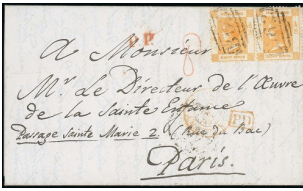 P.P.
à Monsieur
Mr. Le Directeur de l'Œuvre
de la Sainte Enfance
Passage Sainte Marie 2 (Rue du Bac)
PD
Paris.